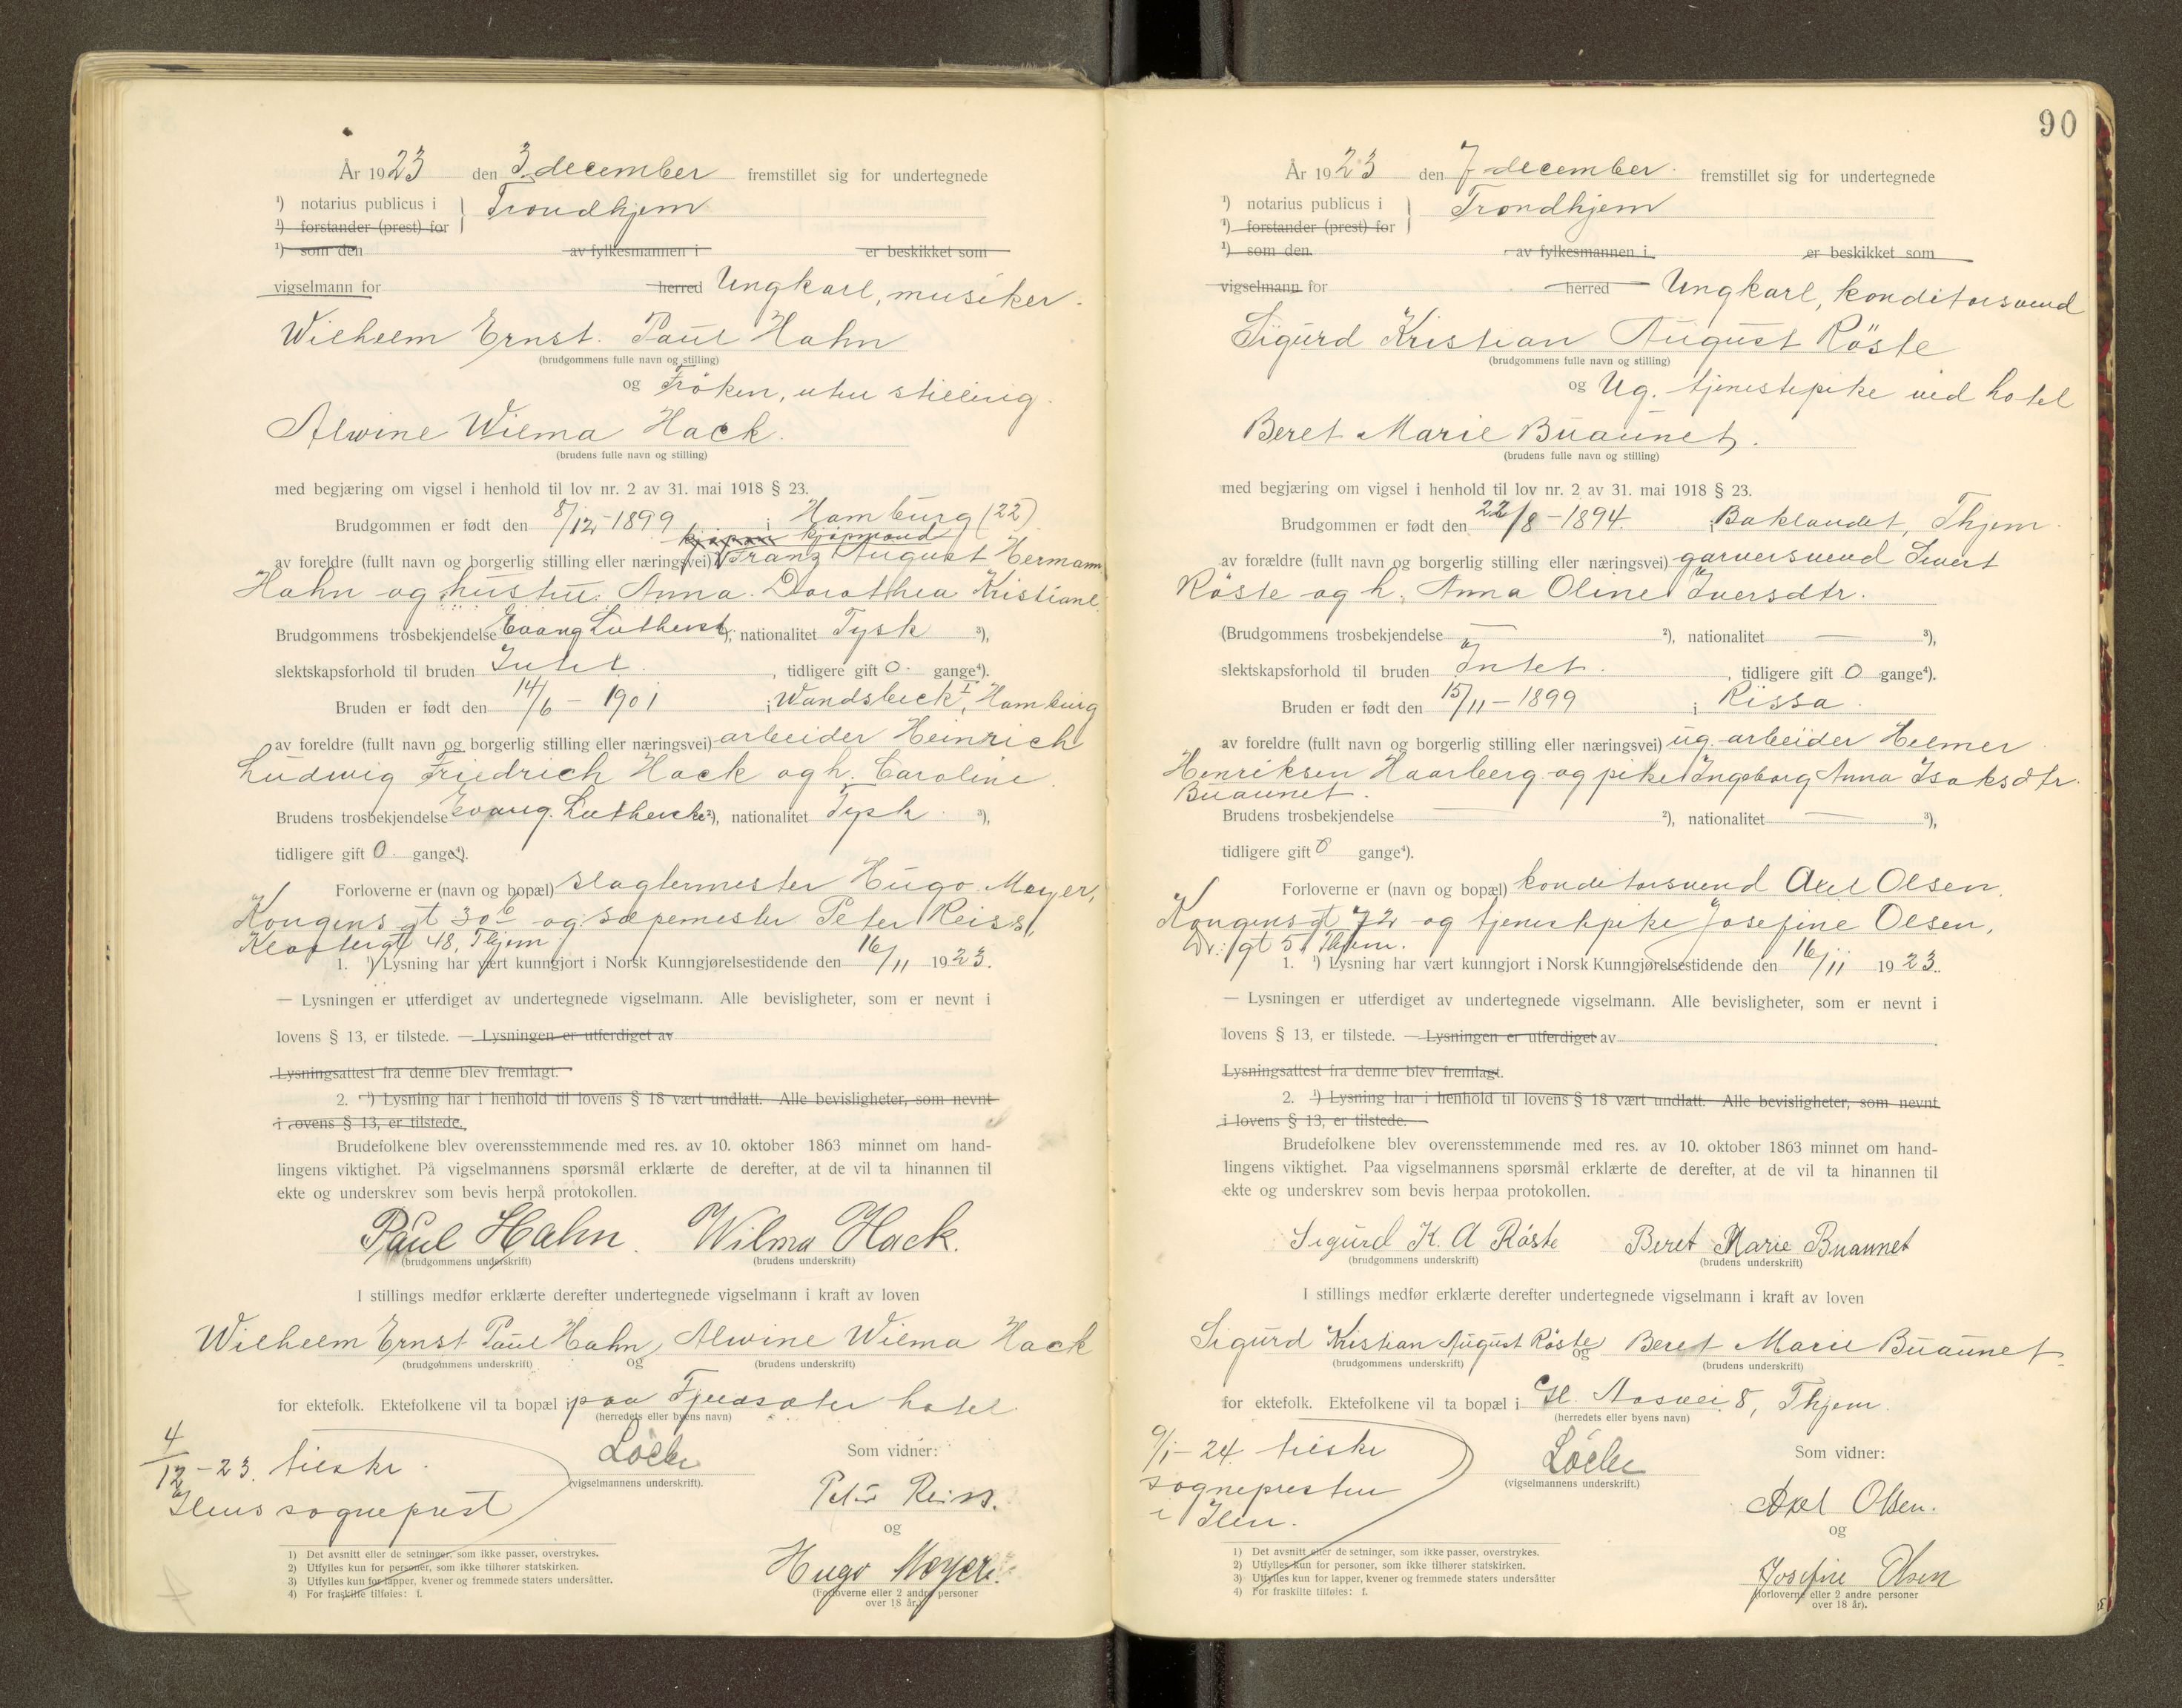 År 1923 den 3 december fremstillet sig for undertegnede
¹) notarius publicus i Trondhjem
¹) forstander (prest) for
¹) som den av fylkesmannen i er beskikket som
vigselmann for herred Ungkarl, musiker.
Wilhelm Ernst Paul Hahn
(brudgommens fulle navn og stilling)
og Fröken, uten stilling.
Alwine Wilma Hack.
(brudens fulle navn og stilling)
med begjæring om vigsel i henhold til lov nr. 2 av 31. mai 1918 § 23.
Brudgommen er født den 8/12-1899 i Hamburg (22)
kjøpmand
av foreldre (fullt navn og borgerlig stilling eller næringsvei) Franz August Hermann
Hahn og hustru Anna Dorothea Kristiane.
Brudgommens trosbekjendelse Evang Luthersk ²), nationalitet Tysk ³),
slektskapsforhold til bruden Intet. , tidligere gift 0 gange⁴).
Bruden er født den 14/6 - 1901 i Wandsbeck, Hamburg
av foreldre (fullt navn og borgerlig stilling eller næringsvei) arbeider Heinrich
Ludwig Friedrich Hack og h. Caroline.
Brudens trosbekjendelse Evang. Lutherske ²), nationalitet Tysk ³),
tidligere gift 0 gange⁴).
Forloverne er (navn og bopæl) slagtermester Hugo Meyer,
Kongens gt 30 og sæpemester Peter Reiss,
Klostergt 48, Thjem
1. ¹) Lysning har vært kunngjort i Norsk Kunngjørelsestidende den 16/11 1923.
— Lysningen er utferdiget av undertegnede vigselmann. Alle bevisligheter, som er nevnt i
lovens § 13, er tilstede. — Lysningen er utferdiget av
Lysningsattest fra denne blev fremlagt.
2. ¹) Lysning har i henhold til lovens § 18 vært undlatt. Alle bevisligheter, som nevnt
i lovens § 13, er tilstede.
Brudefolkene blev overensstemmende med res. av 10. oktober 1863 minnet om hand-
lingens viktighet. På vigselmannens spørsmål erklærte de derefter, at de vil ta hinannen til
ekte og underskrev som bevis herpå protokollen.
Paul Hahn. Wilma Hack.
(brudgommens underskrift) (brudens underskrift)
I stillings medfør erklærte derefter undertegnede vigselmann i kraft av loven
Wilhelm Ernst Paul Hahn, Alwine Wilma Hack
(brudgommens underskrift) og (brudens underskrift)
for ektefolk. Ektefolkene vil ta bopæl i paa Fjeldsæter hotel.
(herredets eller byens navn)
4/12-23. tilskr.
Ilens sogneprest
(vigselmannens underskrift).
Som vidner:
Peter Reiss.
og
Hugo Meyer.
(Forloverne eller 2 andre personer
over 18 år.)
1) Det avsnitt eller de setninger, som ikke passer, overstrykes.
2) Utfylles kun for personer, som ikke tilhører statskirken.
3) Utfylles kun for lapper, kvener og fremmede staters undersåtter.
4) For fraskilte tilføies: f.
90
År 1923 den 7 december. fremstillet sig for undertegnede
¹) notarius publicus i Trondhjem
¹) forstander (prest) for
¹) som den av fylkesmannen i er beskikket som
vigselmann for herred Ungkarl, konditorsvend
Sigurd Kristian August Röste
(brudgommens fulle navn og stilling)
og Ug. tjenestepike ved hotel
Beret Marie Buaunet.
(brudens fulle navn og stilling)
med begjæring om vigsel i henhold til lov nr. 2 av 31. mai 1918 § 23.
Brudgommen er født den 22/8-1894. i Baklandet, Thjem.
av forældre (fullt navn og borgerlig stilling eller næringsvei) garversvend Sivert
Röste og h. Anna Oline Iversdtr.
(Brudgommens trosbekjendelse — ²), nationalitet — ³),
slektskapsforhold til bruden Intet. , tidligere gift 0 gange⁴).
Bruden er født den 15/11-1899 i Rissa.
av foreldre (fullt navn og borgerlig stilling eller næringsvei) ug. arbeider Helmer
Henriksen Haarberg og pike Ingeborg Anna Isaksdtr.
Buaunet.
Brudens trosbekjendelse — ²), nationalitet — ³),
tidligere gift 0 gange⁴).
Forloverne er (navn og bopæl) konditorsvend Axel Olsen,
Kongensgt 72 og tjenestepike Josefine Olsen,
gt 51 Thjem.
1. ¹) Lysning har vært kunngjort i Norsk Kunngjørelsestidende den 16/11 1923.
— Lysningen er utferdiget av undertegnede vigselmann. Alle bevisligheter, som er nevnt i
lovens § 13, er tilstede. — Lysningen er utferdiget av
Lysningsattest fra denne blev fremlagt.
2. ¹) Lysning har i henhold til lovens § 18 vært undlatt. Alle bevisligheter, som nevnt
i lovens § 13, er tilstede.
Brudefolkene blev overensstemmende med res. av 10. oktober 1863 minnet om hand-
lingens viktighet. Paa vigselmannens spørsmål erklærte de derefter, at de vil ta hinannen til
ekte og underskrev som bevis herpaa protokollen.
Sigurd K. A Röste Beret Marie Buaunet
(brudgommens underskrift) (brudens underskrift)
I stillings medfør erklærte derefter undertegnede vigselmann i kraft av loven
Sigurd Kristian August Röste og Beret Marie Buaunet
(brudgommens underskrift) (brudens underskrift)
for ektefolk. Ektefolkene vil ta bopæl i Gl. Aasvei 8, Thjem.
(herredets eller byens navn)
9/1-24. tilskr
sognepresten
i Ilen.
(vigselmannens underskrift.)
Som vidner:
Axel Olsen.
og
Josefine Olsen
(forloverne eller 2 andre personer
over 18 år).
1) Det avsnitt eller de setninger, som ikke passer, overstrykes.
2) Utfylles kun for personer, som ikke tilhører statskirken.
3) Utfylles kun for lapper, kvener og fremmede staters undersåtter
4) For fraskilte tilføies: f.